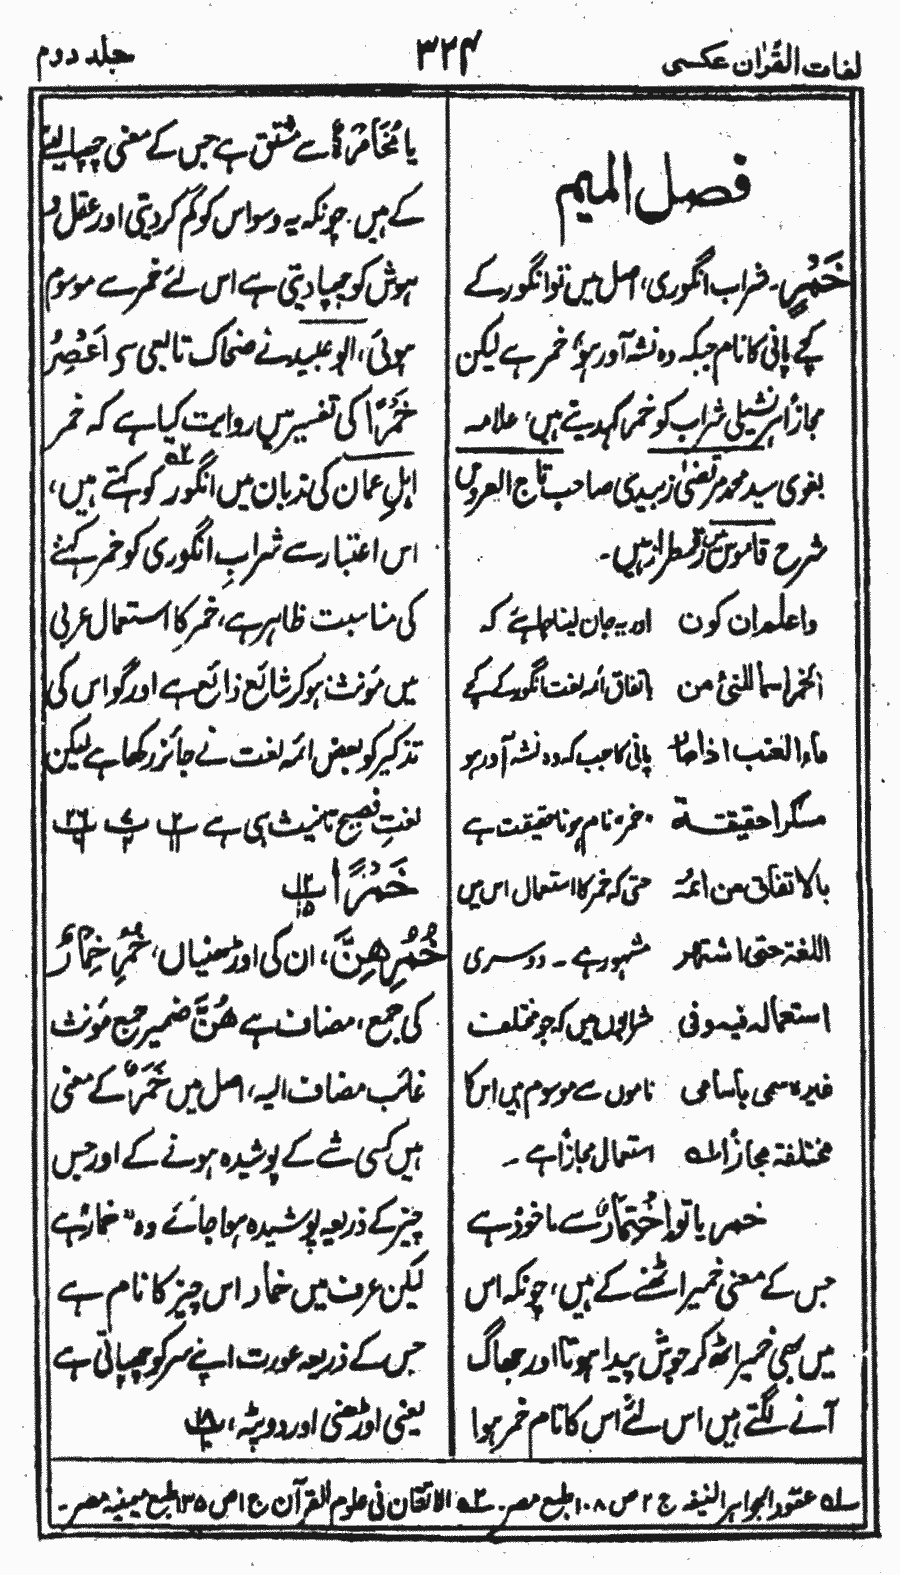 لغات القرآن عکسی
۳۲۴
جلد دوم
فصل المیم
خَمْرٍ۔ شراب انگوری، اصل میں تو انگور کے
کچے پانی کا نام جبکہ وہ نشہ آور ہو، خمر ہے لیکن
مجازاً ہر نشیلی شراب کو خمر کہہ دیتے ہیں، علامہ
بغوی سید محمد مرتضیٰ زبیدی صاحب تاج العروس
شرح قاموس میں رقمطراز ہیں۔
واعلم ان کون اور یہ جان لینا چاہئے کہ
الخمر اسما للنیٔ من باتفاق ائمہ لغت انگور کے کچے
ماء العنب اذا صار پانی کا جب کہ وہ نشہ آور ہو
مسکرا حقیقة خمر نام ہونا حقیقت ہے
بالاتفاق من ائمة حتی کہ خمر کا استعمال اس میں
اللغة حتی اشتهر مشہور ہے۔ دوسری
استعماله فیه وفی شرابوں میں کہ جو مختلف
غیره سمی باسامی ناموں سے موسوم ہیں اس کا
مختلفة مجازاً لہ استعمال مجازاً ہے۔
خمر یا تو اِخْتِمَارٌ سے ماخوذ ہے
جس کے معنی خمیر اٹھنے کے ہیں، چونکہ اس
میں بھی خمیر اٹھ کر جوش پیدا ہوتا اور جھاگ
آنے لگتے ہیں اس لئے اس کا نام خمر ہوا
یا مُخَامَرَةٌ سے مشتق ہے جس کے معنی چھپا لینے
کے ہیں۔ چونکہ یہ وسواس کو گم کر دیتی اور عقل و
ہوش کو چھپا دیتی ہے اس لئے خمر سے موسوم
ہوئی، ابو عبید نے ضحاک تابعی سے اَعْصِرُ
خَمْرًا کی تفسیر میں روایت کیا ہے کہ خمر
اہلِ عمان کی زبان میں انگور کو کہتے ہیں،
اس اعتبار سے شراب انگوری کو خمر کہنے
کی مناسبت ظاہر ہے، خمر کا استعمال عربی
میں مؤنث ہو کر شائع ذائع ہے اور گو اس کی
تذکیر کو بعض ائمہ لغت نے جائز رکھا ہے لیکن
لغتِ فصیح تانیث ہی ہے
خَمْرًا
خُمُرِهِنَّ، ان کی اوڑھنیاں، خُمُرِ خِمَارٌ
کی جمع، مضاف ہے هُنَّ ضمیر جمع مؤنث
غائب مضاف الیہ، اصل میں خَمَرٌ کے معنی
ہیں کسی شے کے پوشیدہ ہونے کے اور جس
چیز کے ذریعہ پوشیدہ ہوا جائے وہ خمار ہے
لیکن عرف میں خمار اس چیز کا نام ہے
جس کے ذریعہ عورت اپنے سر کو چھپاتی ہے
یعنی اوڑھنی اور دوپٹہ،
لہ عقود الجواہر المنیفہ ج ۲ ص ۱۰۸ طبع مصر۔ ۲ہ الاتقان فی علوم القرآن ج ۱ ص ۱۳۵ طبع میمنیہ مصر۔